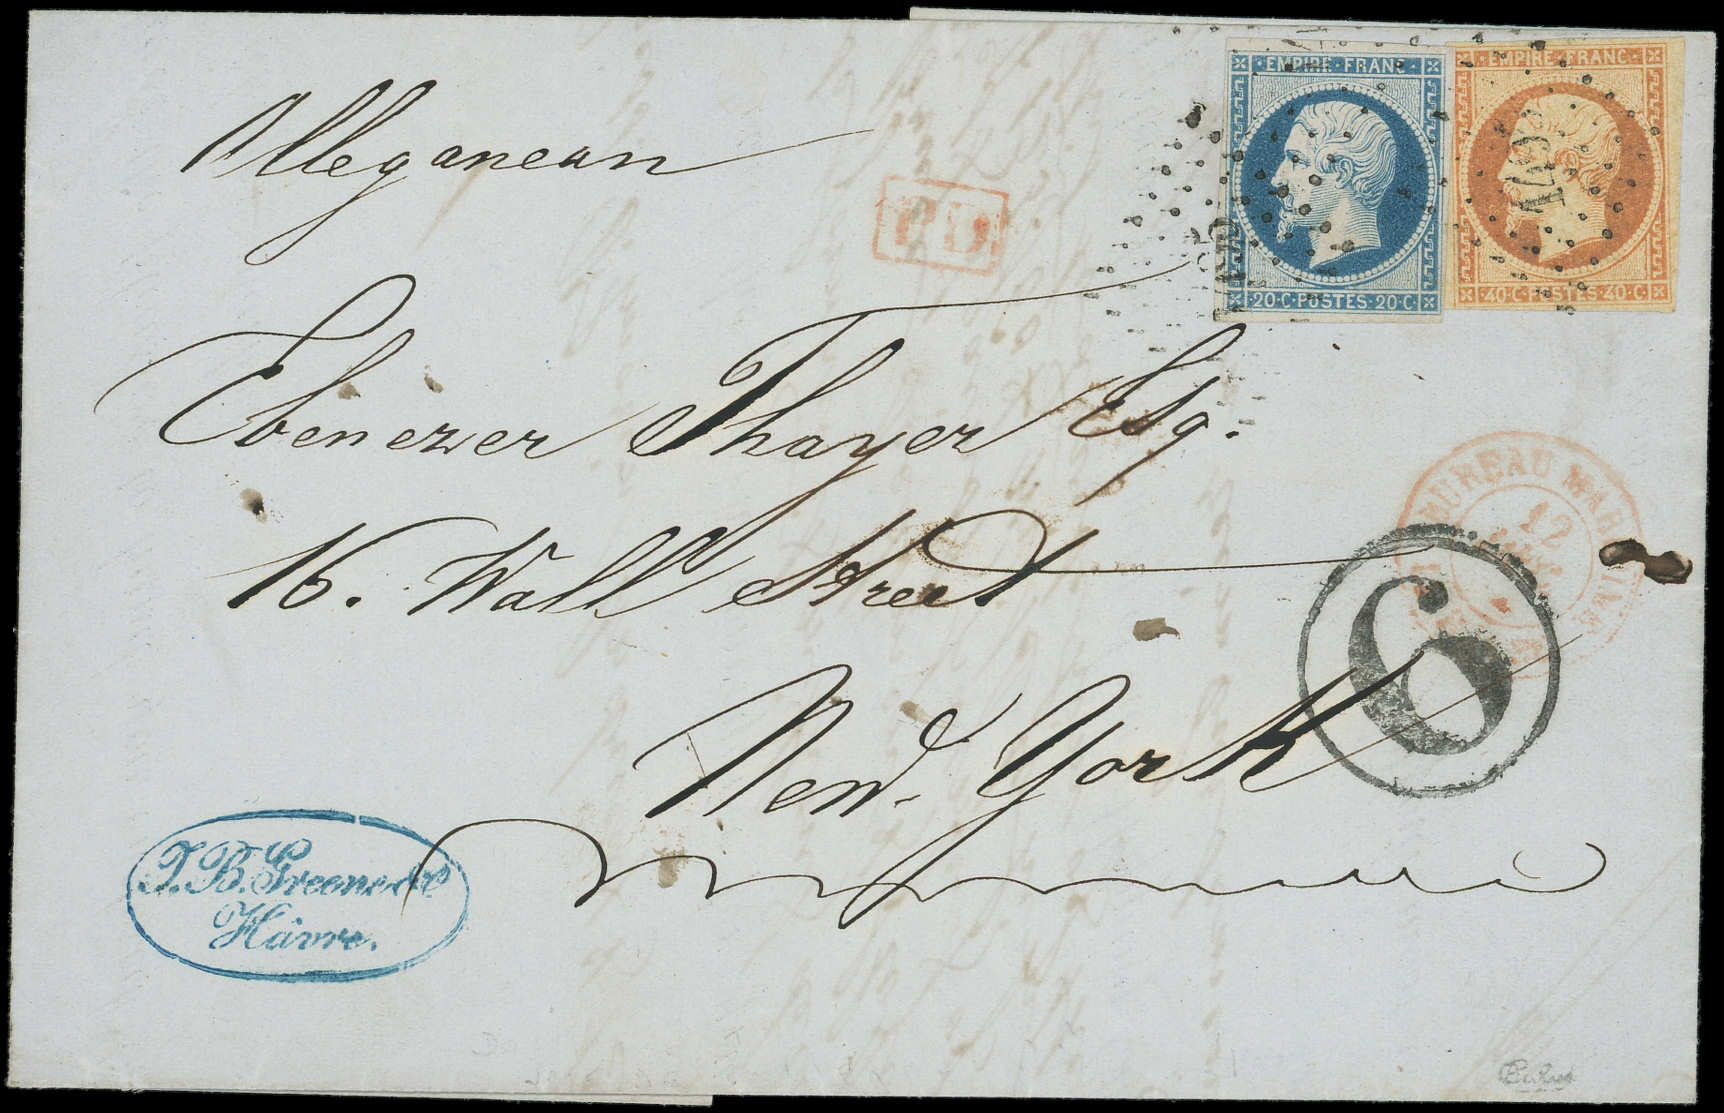 Alleganean
P.D.
EMPIRE · FRANC ·
20 · C · POSTES · 20 · C ·
· EMPIRE · FRANC ·
· 40 · C · POSTES · 40 · C ·
Ebenezer Thayer Esq.
16. Wall Street
New. York
BUREAU MARITIME
12
6
J. B. Greene & Co
Hâvre.